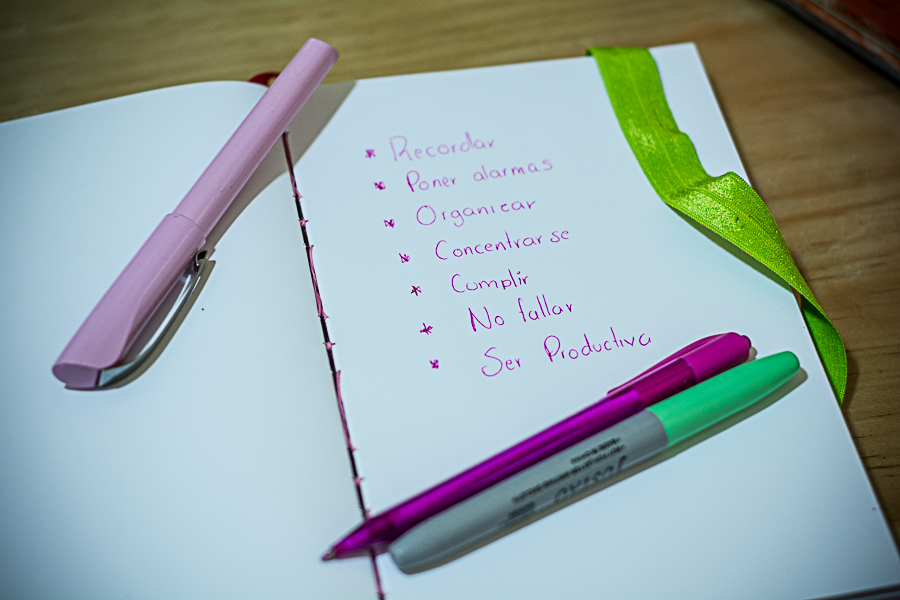 * Recordar
* Poner alarmas
* Organizar
* Concentrarse
* Cumplir
* No fallar
* Ser Productiva